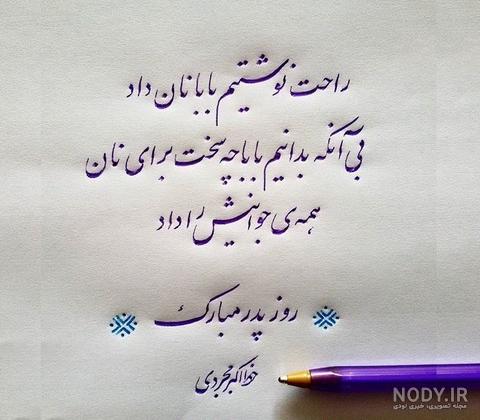 راحت نوشتیم بابا نان داد
بی آنکه بدانیم بابا چه سخت برای نان
همه‌ی جوانیش را داد
روز پدر مبارک
خط اکبر مجردی
NODY.IR
مجله تصویری، خبری نودی